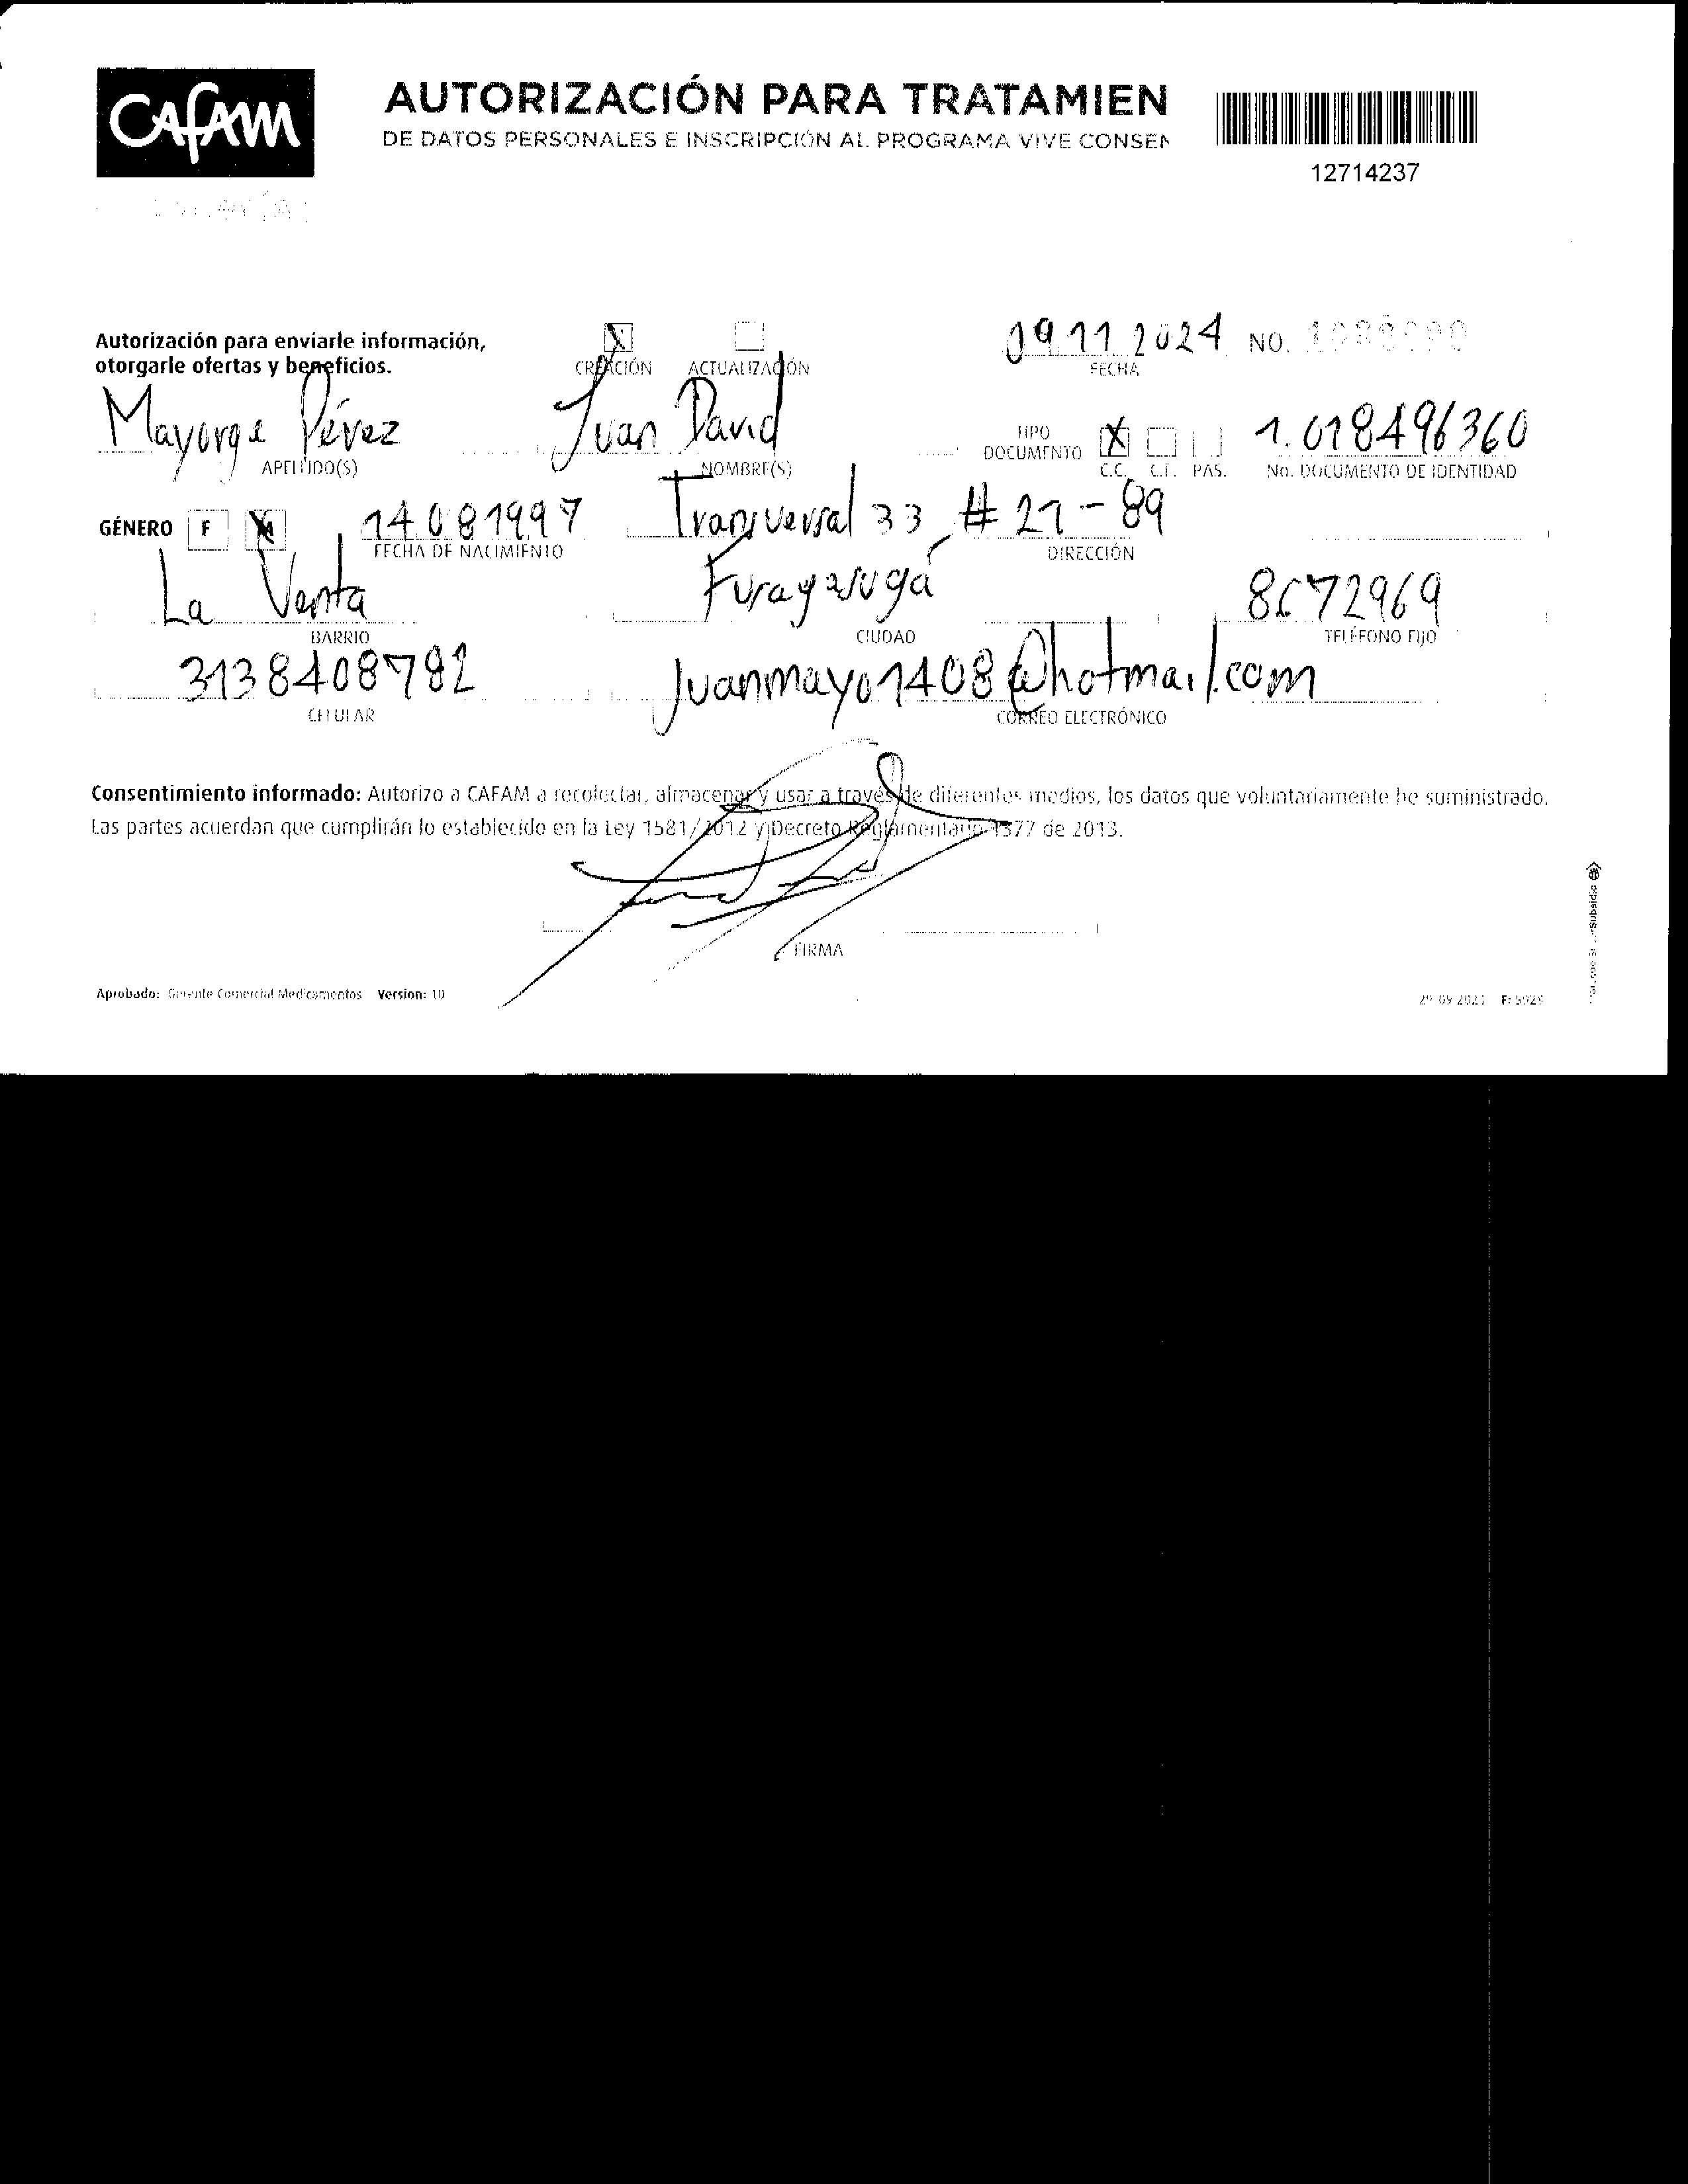 CAFAM
AUTORIZACIÓN PARA TRATAMIEN
DE DATOS PERSONALES E INSCRIPCIÓN AL PROGRAMA VIVE CONSEN
12714237
Autorización para enviarle información,
otorgarle ofertas y beneficios.
X CREACIÓN ACTUALIZACIÓN
09 11 2024 NO.
FECHA
Mayorga Pérez Juan David
APELLIDO(S) NOMBRE(S)
TIPO DOCUMENTO X C.C. C.E. PAS.
1.018496360
No. DOCUMENTO DE IDENTIDAD
GÉNERO F M 14 08 1997 Transversal 33 # 21-89
FECHA DE NACIMIENTO DIRECCIÓN
La Venta Fusagasugá 8672969
BARRIO CIUDAD TELÉFONO FIJO
3138408782 Juanmayo1408@hotmail.com
CELULAR CORREO ELECTRÓNICO
Consentimiento informado: Autorizo a CAFAM a recolectar, almacenar y usar a través de diferentes medios, los datos que voluntariamente he suministrado.
Las partes acuerdan que cumplirán lo establecido en la Ley 1581/2012 y Decreto Reglamentario 1377 de 2013.
FIRMA
Aprobado: Gerente Comercial Medicamentos Version: 10